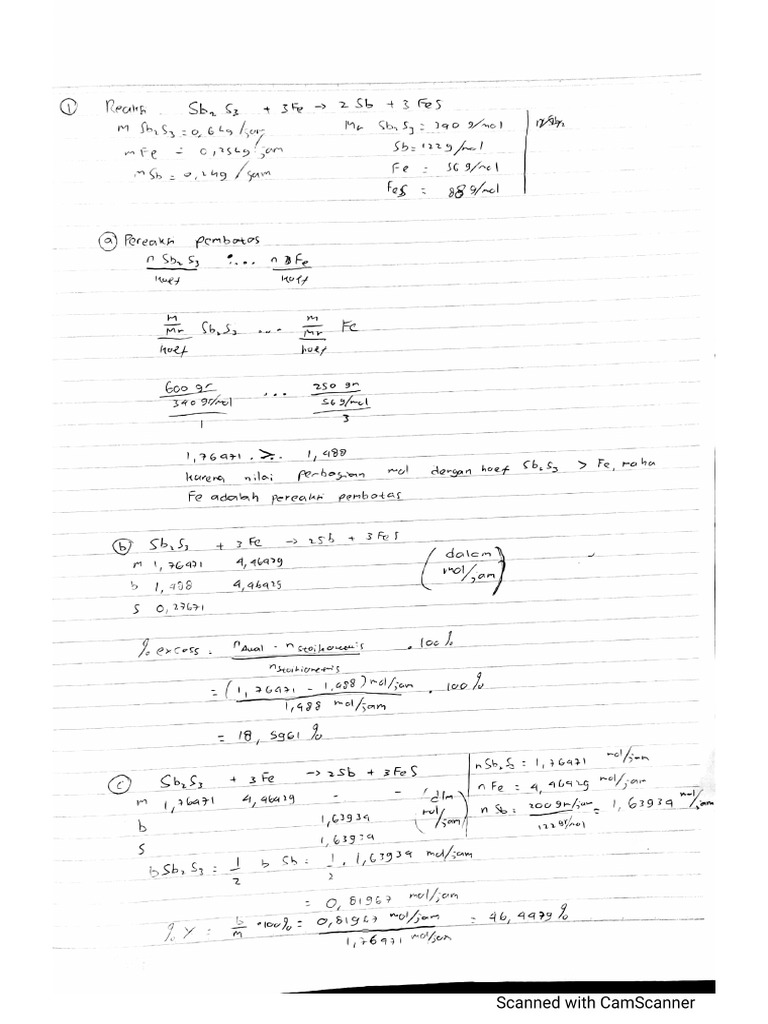 ① Reaksi Sb₂S₃ + 3Fe → 2Sb + 3FeS
m Sb₂S₃ = 0,6 kg/jam Mr Sb₂S₃ = 340 g/mol
m Fe = 0,25 kg/jam Sb = 122 g/mol
m Sb = 0,2 kg/jam Fe = 56 g/mol
FeS = 88 g/mol
ⓐ Pereaksi pembatas
n Sb₂S₃ .... n Fe
koef koef
m/Mr Sb₂S₃ ... m/Mr Fe
koef koef
600 gr ... 250 gr
340 gr/mol 56 g/mol
1 3
1,76471 .>. 1,488
karena nilai perbagian mol dengan koef Sb₂S₃ > Fe, maka
Fe adalah pereaksi pembatas
ⓑ Sb₂S₃ + 3Fe → 2Sb + 3FeS
m 1,76471 4,46429 (dalam mol/jam)
b 1,488 4,46429
s 0,27671
% excess = (n Awal - n Stoikiometris) / n Stoikiometris . 100%
= (1,76471 - 1,488) mol/jam / 1,488 mol/jam . 100%
= 18,5961 %
ⓒ Sb₂S₃ + 3Fe → 2Sb + 3FeS
m 1,76471 4,46429 - - (dlm mol/jam)
b 1,63934
s 1,63934
n Sb₂S₃ = 1,76471 mol/jam
n Fe = 4,46429 mol/jam
n Sb = 200 gr/jam / 122 gr/mol = 1,63934 mol/jam
b Sb₂S₃ = 1/2 b Sb = 1/2 . 1,63934 mol/jam
= 0,81967 mol/jam
% Y = b/m . 100% = 0,81967 mol/jam / 1,76471 mol/jam = 46,4479 %
Scanned with CamScanner